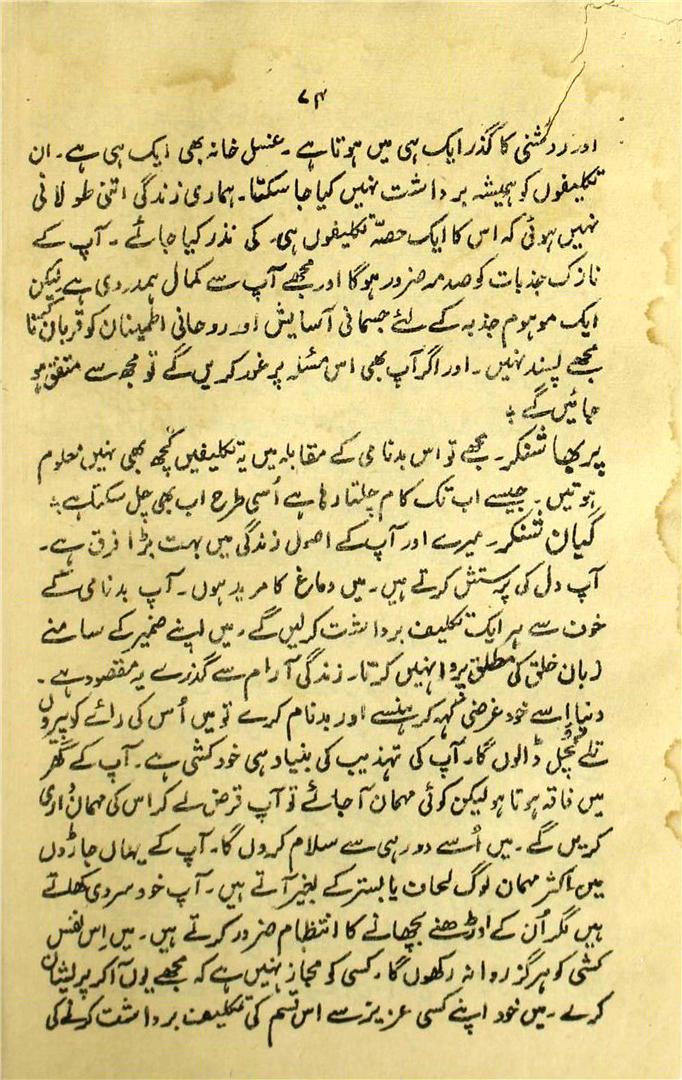 ۷۴
اور روشنی کا گذر ایک ہی میں ہوتا ہے۔ غسل خانہ بھی ایک ہی ہے۔ ان
تکلیفوں کو ہمیشہ برداشت نہیں کیا جا سکتا۔ ہماری زندگی اتنی طولانی
نہیں ہوئی کہ اس کا ایک حصّہ تکلیفوں ہی کی نذر کیا جائے ۔ آپ کے
نازک جذبات کو صدمہ ضرور ہوگا اور مجھے آپ سے کمال ہمدردی ہے لیکن
ایک موہوم جذبہ کے لئے جسمانی آسایش اور روحانی اطمینان کو قربان کرنا
مجھے پسند نہیں ۔ اور اگر آپ بھی اس مسئلہ پر غور کریں گے تو مجھ سے متفق ہو
جائیں گے ؞
پربھا شنکر۔ مجھے تو اس بدنامی کے مقابلہ میں یہ تکلیفیں کچھ بھی نہیں معلوم
ہوتیں۔ جیسے اب تک کام چلتا رہا ہے اُسی طرح اب بھی چل سکتا ہے ؞
گیان شنکر۔ میرے اور آپ کے اصول زندگی میں بہت بڑا فرق ہے۔
آپ دل کی پرستش کرتے ہیں۔ میں دماغ کا مرید ہوں۔ آپ بدنامی کے
خوف سے ہر ایک تکلیف برداشت کرلیں گے۔ میں اپنے ضمیر کے سامنے
زبان خلق کی مطلق پروا نہیں کرتا۔ زندگی آرام سے گذرے یہ مقصود ہے۔
دنیا اسے خود غرضی کہہ کر ہنسے اور بدنام کرے تو میں اُس کی رائے کو پیروں
تلے کُچل ڈالوں گا۔ آپ کی تہذیب کی بنیاد ہی خودکشی ہے۔ آپ کے گھر
میں فاقہ ہوتا ہو لیکن کوئی مہمان آجائے تو آپ قرض لے کر اس کی مہمانداری
کریں گے ۔ میں اُسے دور ہی سے سلام کروں گا۔ آپ کے یہاں جاڑوں
میں اکثر مہمان لوگ لحاف یا بستر کے بغیر آتے ہیں۔ آپ خود سردی کھاتے
ہیں مگر اُن کے اوڑھنے بچھانے کا انتظام ضرور کرتے ہیں۔ میں اِس نفس
کشی کو ہرگز روا نہ رکھوں گا۔ کسی کو مجاز نہیں ہے کہ مجھے یوں آکر پریشان
کرے ۔ میں خود اپنے کسی عزیز سے اس قسم کی تکلیف برداشت کرنے کی